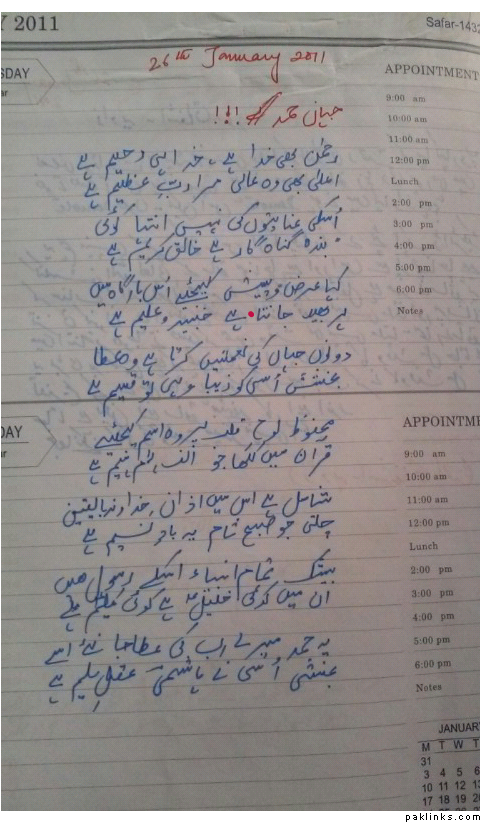 Y 2011
Safar-1432
SDAY
ar
26th January 2011
APPOINTMENT
9:00 am
10:00 am
11:00 am
12:00 pm
Lunch
2:00 pm
3:00 pm
4:00 pm
5:00 pm
6:00 pm
Notes
جہانِ حمد !!!
رحمٰن بھی خدا ہے ، خدا ہی رحیم ہے
اعلیٰ بھی وہ عالی مرا ربِ عظیم ہے
اُسکی عنایتوں کی نہیں انتہا کوئی
بندہ گناہ گار ہے خالق کریم ہے
کیا عرض و پیش کیجئے اُس بارگاہ میں
ہر بھید جانتا ہے خبیر و علیم ہے
دونوں جہاں کی نعمتیں کرتا ہے وہ عطا
بخشش اُسی کو زیبا وہی تو قسیم ہے
محفوظ لوح قلب پر وہ اسم کیجئے
قرآن میں لکھا جو الف لام میم ہے
شامل ہے اس میں اذنِ خداوند بالیقین
چلتی جو صبح شام یہ بادِ نسیم ہے
بیشک تمام انبیاء اسکے رسول ہیں
ان میں کوئی خلیل ہے کوئی کلیم ہے
یہ حمد میرے رب کی عطا جانئے اسے
بخشی اُسی نے ہاشمی عقلِ سلیم ہے
DAY
ar
APPOINTME
9:00 am
10:00 am
11:00 am
12:00 pm
Lunch
2:00 pm
3:00 pm
4:00 pm
5:00 pm
6:00 pm
Notes
JANUAR
M T W T
31
3 4 5 6
10 11 12 13
17 18 19 20
paklinks.com